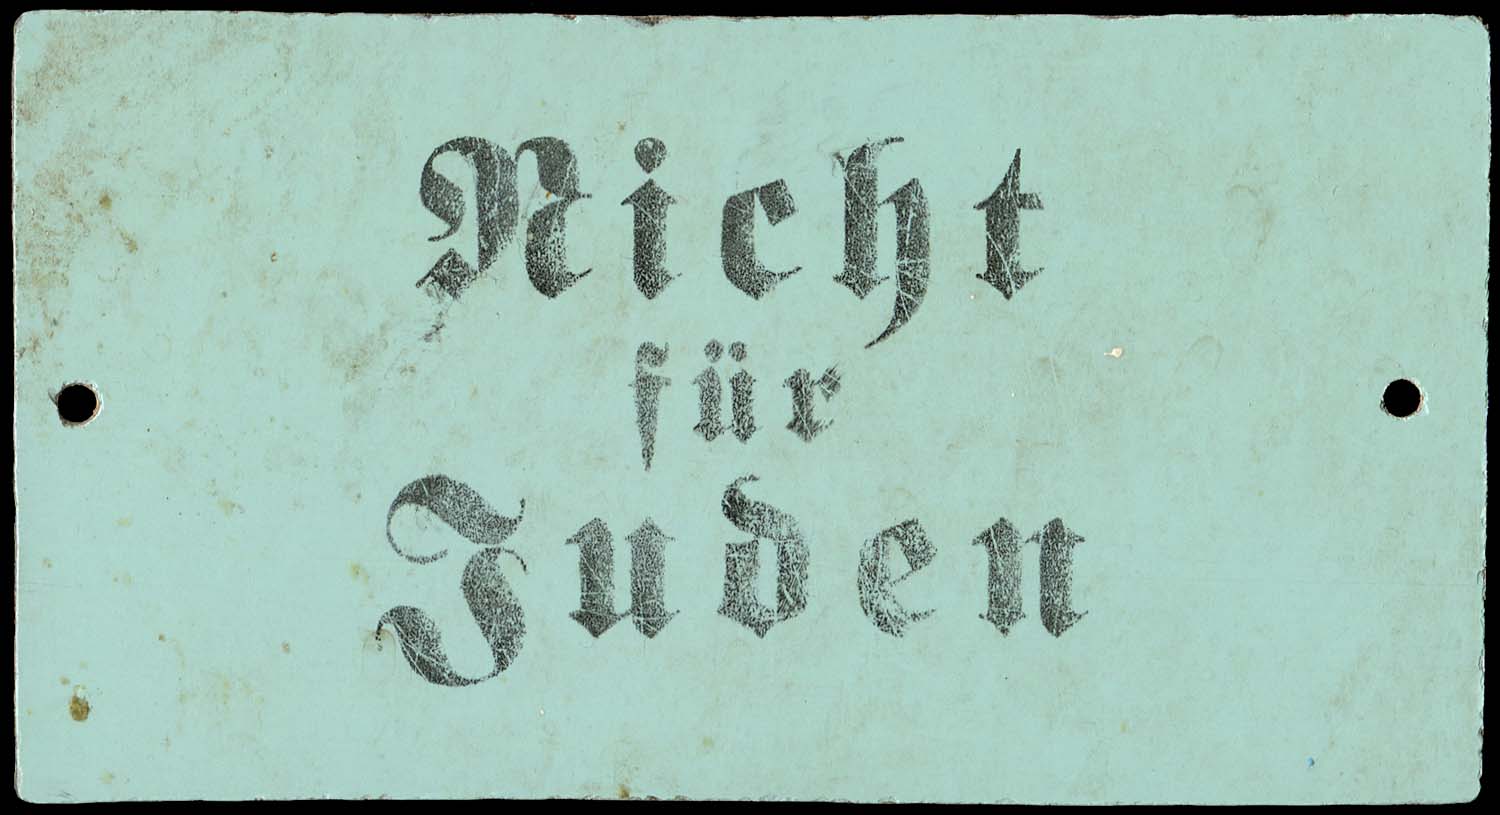 Nicht
für
Juden